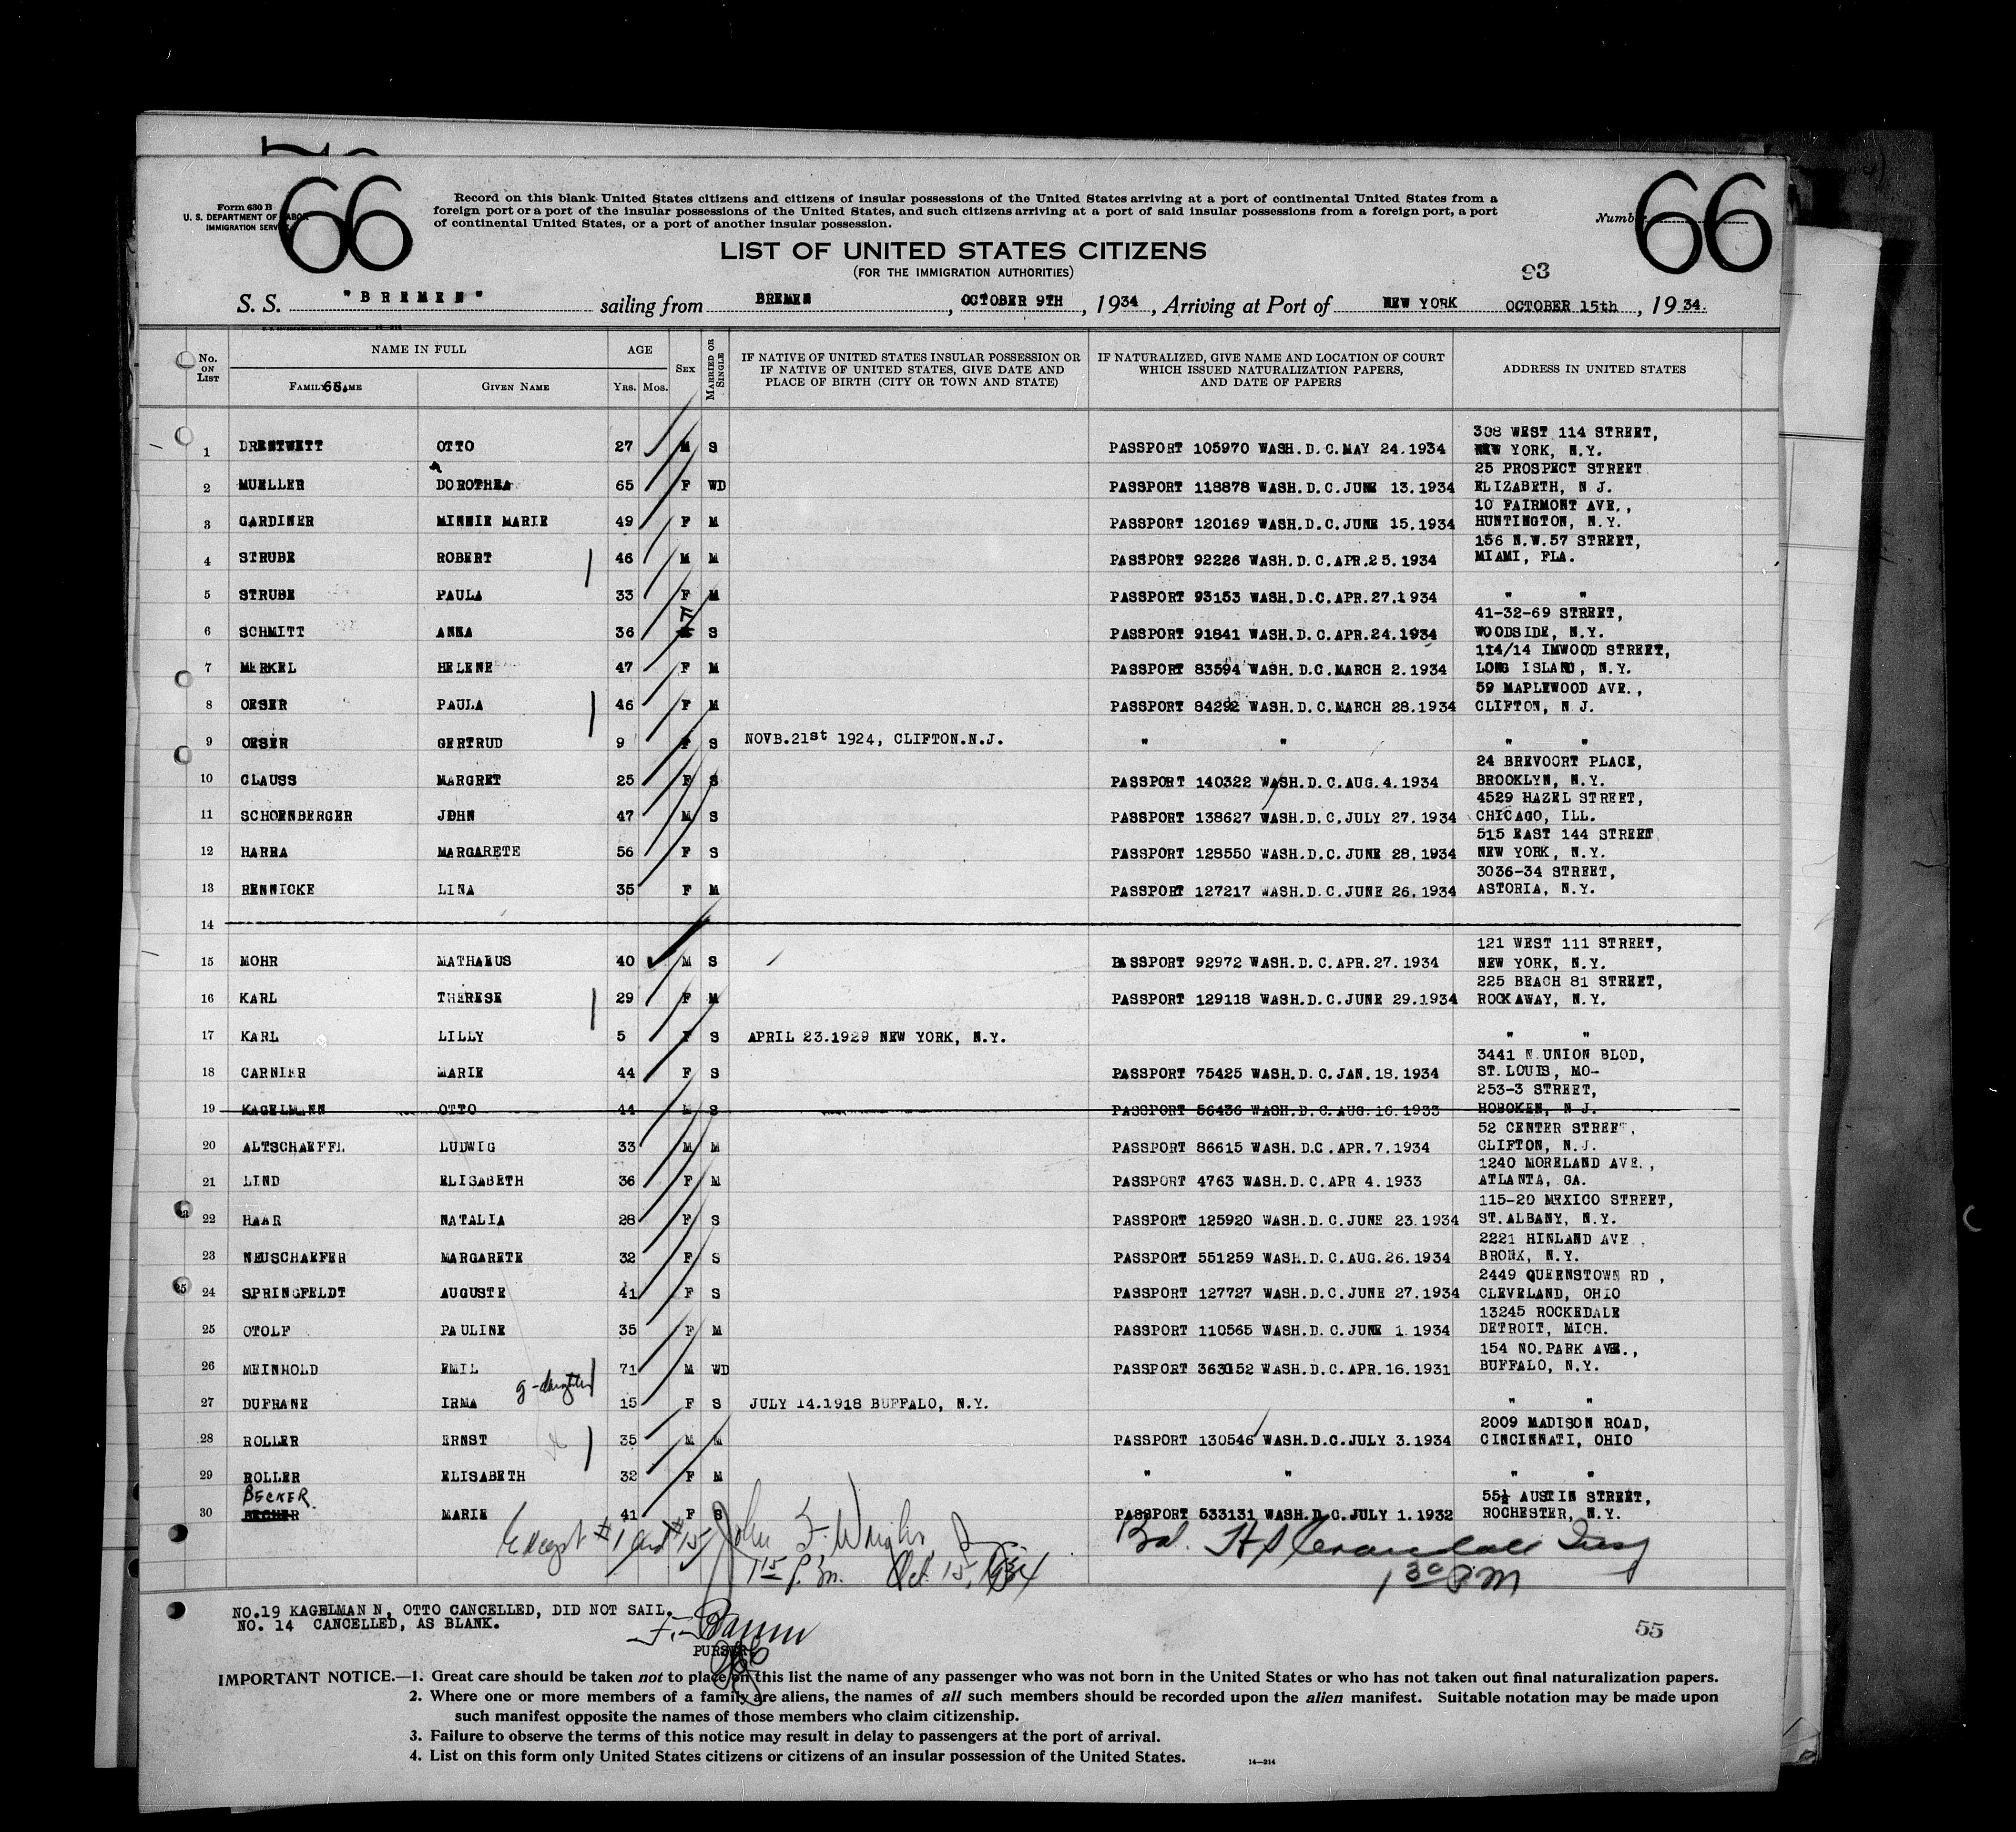 66
66
Form 630 B
U. S. DEPARTMENT OF LABOR
IMMIGRATION SERVICE
Record on this blank United States citizens and citizens of insular possessions of the United States arriving at a port of continental United States from a
foreign port or a port of the insular possessions of the United States, and such citizens arriving at a port of said insular possessions from a foreign port, a port
of continental United States, or a port of another insular possession.
LIST OF UNITED STATES CITIZENS
(FOR THE IMMIGRATION AUTHORITIES)
93
S. S. "BREMEN" sailing from BREMEN, OCTOBER 9TH, 1934, Arriving at Port of NEW YORK OCTOBER 15th, 1934.
No. ON LIST NAME IN FULL AGE SEX MARRIED OR SINGLE IF NATIVE OF UNITED STATES INSULAR POSSESSION OR IF NATIVE OF UNITED STATES, GIVE DATE AND PLACE OF BIRTH (CITY OR TOWN AND STATE) IF NATURALIZED, GIVE NAME AND LOCATION OF COURT WHICH ISSUED NATURALIZATION PAPERS, AND DATE OF PAPERS ADDRESS IN UNITED STATES
FAMILY NAME 66. GIVEN NAME YRS. MOS.
308 WEST 114 STREET,
1 DRENTWETT OTTO 27 M S PASSPORT 105970 WASH.D.C.MAY 24.1934 NEW YORK, N.Y.
25 PROSPECT STREET
2 MUELLER DOROTHEA 65 F WD PASSPORT 118878 WASH.D.C.JUNE 13.1934 ELIZABETH, N J.
10 FAIRMONT AVE.,
3 GARDINER MINNIE MARIE 49 F M PASSPORT 120169 WASH.D.C.JUNE 15.1934 HUNTINGTON, N.Y.
156 N.W.57 STREET,
4 STRUBE ROBERT 46 M M PASSPORT 92226 WASH.D.C.APR.25.1934 MIAMI, FLA.
5 STRUBE PAULA 33 F M PASSPORT 93153 WASH.D.C.APR.27.1934 " "
41-32-69 STREET,
6 SCHMITT ANNA 36 F S PASSPORT 91841 WASH.D.C.APR.24.1934 WOODSIDE, N.Y.
114/14 IMWOOD STREET,
7 MERKEL HELENE 47 F M PASSPORT 83594 WASH.D.C.MARCH 2.1934 LONG ISLAND, N.Y.
59 MAPLEWOOD AVE.,
8 OESER PAULA 46 F M PASSPORT 84292 WASH.D.C.MARCH 28.1934 CLIFTON, N J.
9 OESER GERTRUD 9 F S NOVB.21st 1924, CLIFTON.N.J. " " " "
24 BREVOORT PLACE,
10 CLAUSS MARGRET 25 F S PASSPORT 140322 WASH.D.C.AUG.4.1934 BROOKLYN, N.Y.
4529 HAZEL STREET,
11 SCHOENBERGER JOHN 47 M S PASSPORT 138627 WASH.D.C.JULY 27.1934 CHICAGO, ILL.
515 EAST 144 STREET
12 HARRA MARGARETE 56 F S PASSPORT 128550 WASH.D.C.JUNE 28.1934 NEW YORK, N.Y.
3036-34 STREET,
13 RENNICKE LINA 35 F M PASSPORT 127217 WASH.D.C.JUNE 26.1934 ASTORIA, N.Y.
14
121 WEST 111 STREET,
15 MOHR MATHAEUS 40 M S PASSPORT 92972 WASH.D.C.APR.27.1934 NEW YORK, N.Y.
225 BEACH 81 STREET,
16 KARL THERESE 29 F M PASSPORT 129118 WASH.D.C.JUNE 29.1934 ROCKAWAY, N.Y.
17 KARL LILLY 5 F S APRIL 23.1929 NEW YORK, N.Y. " "
3441 N.UNION BLOD,
18 CARNIER MARIE 44 F S PASSPORT 75425 WASH.D.C.JAN.18.1934 ST.LOUIS, MO-
253-3 STREET,
19 KAGELMANN OTTO 44 M S PASSPORT 56436 WASH.D.C.AUG.16.1933 HOBOKEN, N J.
52 CENTER STREET,
20 ALTSCHAEFFL LUDWIG 33 M M PASSPORT 86615 WASH.D.C.APR.7.1934 CLIFTON, N.J.
1240 MORELAND AVE.,
21 LIND ELISABETH 36 F M PASSPORT 4763 WASH.D.C.APR 4.1933 ATLANTA, GA.
115-20 MEXICO STREET,
22 HAAR NATALIA 28 F S PASSPORT 125920 WASH.D.C.JUNE 23.1934 ST.ALBANY, N.Y.
2221 HINLAND AVE.,
23 NEUSCHAEFER MARGARETE 32 F S PASSPORT 551259 WASH.D.C.AUG.26.1934 BRONX, N.Y.
2449 QUEENSTOWN RD,
24 SPRINGFELDT AUGUSTE 41 F S PASSPORT 127727 WASH.D.C.JUNE 27.1934 CLEVELAND, OHIO
13245 ROCKEDALE
25 OTOLF PAULINE 35 F M PASSPORT 110565 WASH.D.C.JUNE 1.1934 DETROIT, MICH.
154 NO.PARK AVE.,
26 MEINHOLD EMIL 71 M WD PASSPORT 363152 WASH.D.C.APR.16.1931 BUFFALO, N.Y.
g-daughter
27 DUFRANE IRMA 15 F S JULY 14.1918 BUFFALO, N.Y. " "
2009 MADISON ROAD,
28 ROLLER ERNST 35 M M PASSPORT 130546 WASH.D.C.JULY 3.1934 CINCINNATI, OHIO
29 ROLLER ELISABETH 32 F M " " " "
BECKER 55½ AUSTIN STREET,
30 MARIE 41 F S PASSPORT 533131 WASH.D.C.JULY 1.1932 ROCHESTER, N.Y.
Except #1 and #15 John F. Wright, Bd. Insp
1 15 P.M. Oct 15, 1934 1 30 PM
NO.19 KAGELMANN, OTTO CANCELLED, DID NOT SAIL.
NO. 14 CANCELLED, AS BLANK.
55
PURSER
IMPORTANT NOTICE.—1. Great care should be taken not to place on this list the name of any passenger who was not born in the United States or who has not taken out final naturalization papers.
2. Where one or more members of a family are aliens, the names of all such members should be recorded upon the alien manifest. Suitable notation may be made upon
such manifest opposite the names of those members who claim citizenship.
3. Failure to observe the terms of this notice may result in delay to passengers at the port of arrival.
4. List on this form only United States citizens or citizens of an insular possession of the United States.
14—214